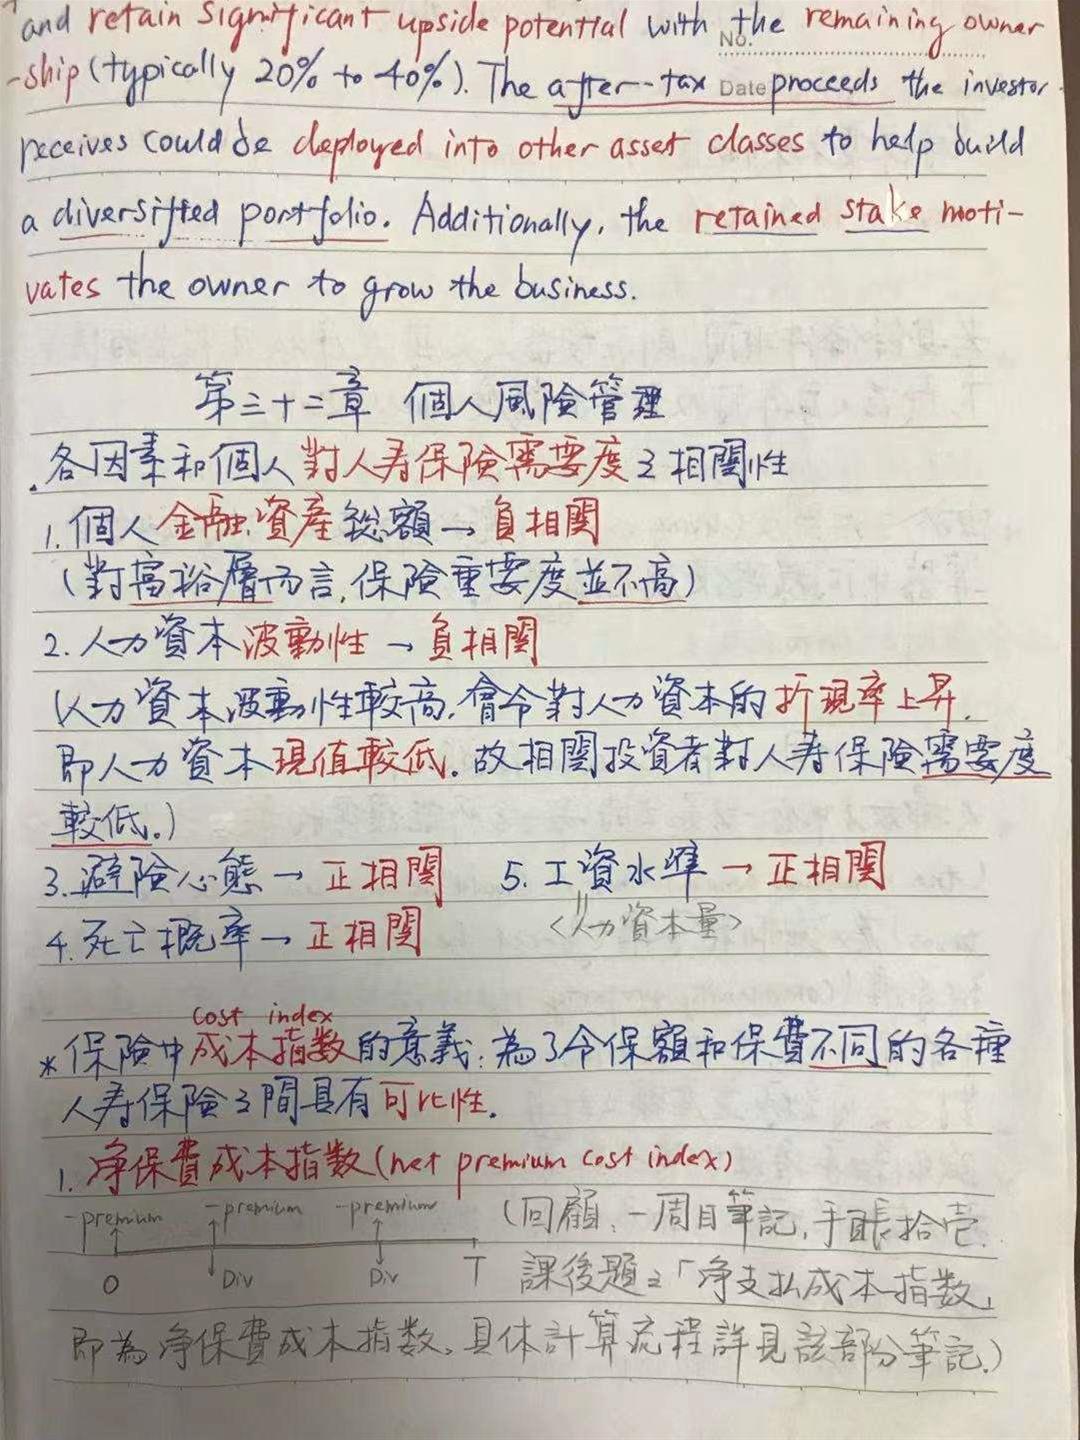 and retain significant upside potential with the remaining owner
No.
-ship (typically 20% to 40%). The after-tax proceeds the investor
Date
receives could be deployed into other asset classes to help build
a diversified portfolio. Additionally, the retained stake moti-
vates the owner to grow the business.
第三十二章 個人風險管理
·各因素和個人對人寿保險需要度之相関性
1.個人金融資産総額→負相関
(對富裕層而言,保險重要度並不高)
2.人力資本波動性→負相関
(人力資本波動性較高,會令對人力資本的折現率上昇,
即人力資本現值較低。故相関投資者對人寿保險需要度
較低。)
3.避險心態→正相関 5.工資水準→正相関
4.死亡概率→正相関 <人力資本量>
cost index
*保險中成本指数的意義:為了令保額和保費不同的各種
人寿保險之間具有可比性。
1.净保費成本指数(net premium cost index)
-premium -premium -premium (回顧、一周目筆記,手帳拾壱.
0 Div Div T 課後題之「净支払成本指数」
即為净保費成本指数。具体計算流程詳見該部份筆記。)